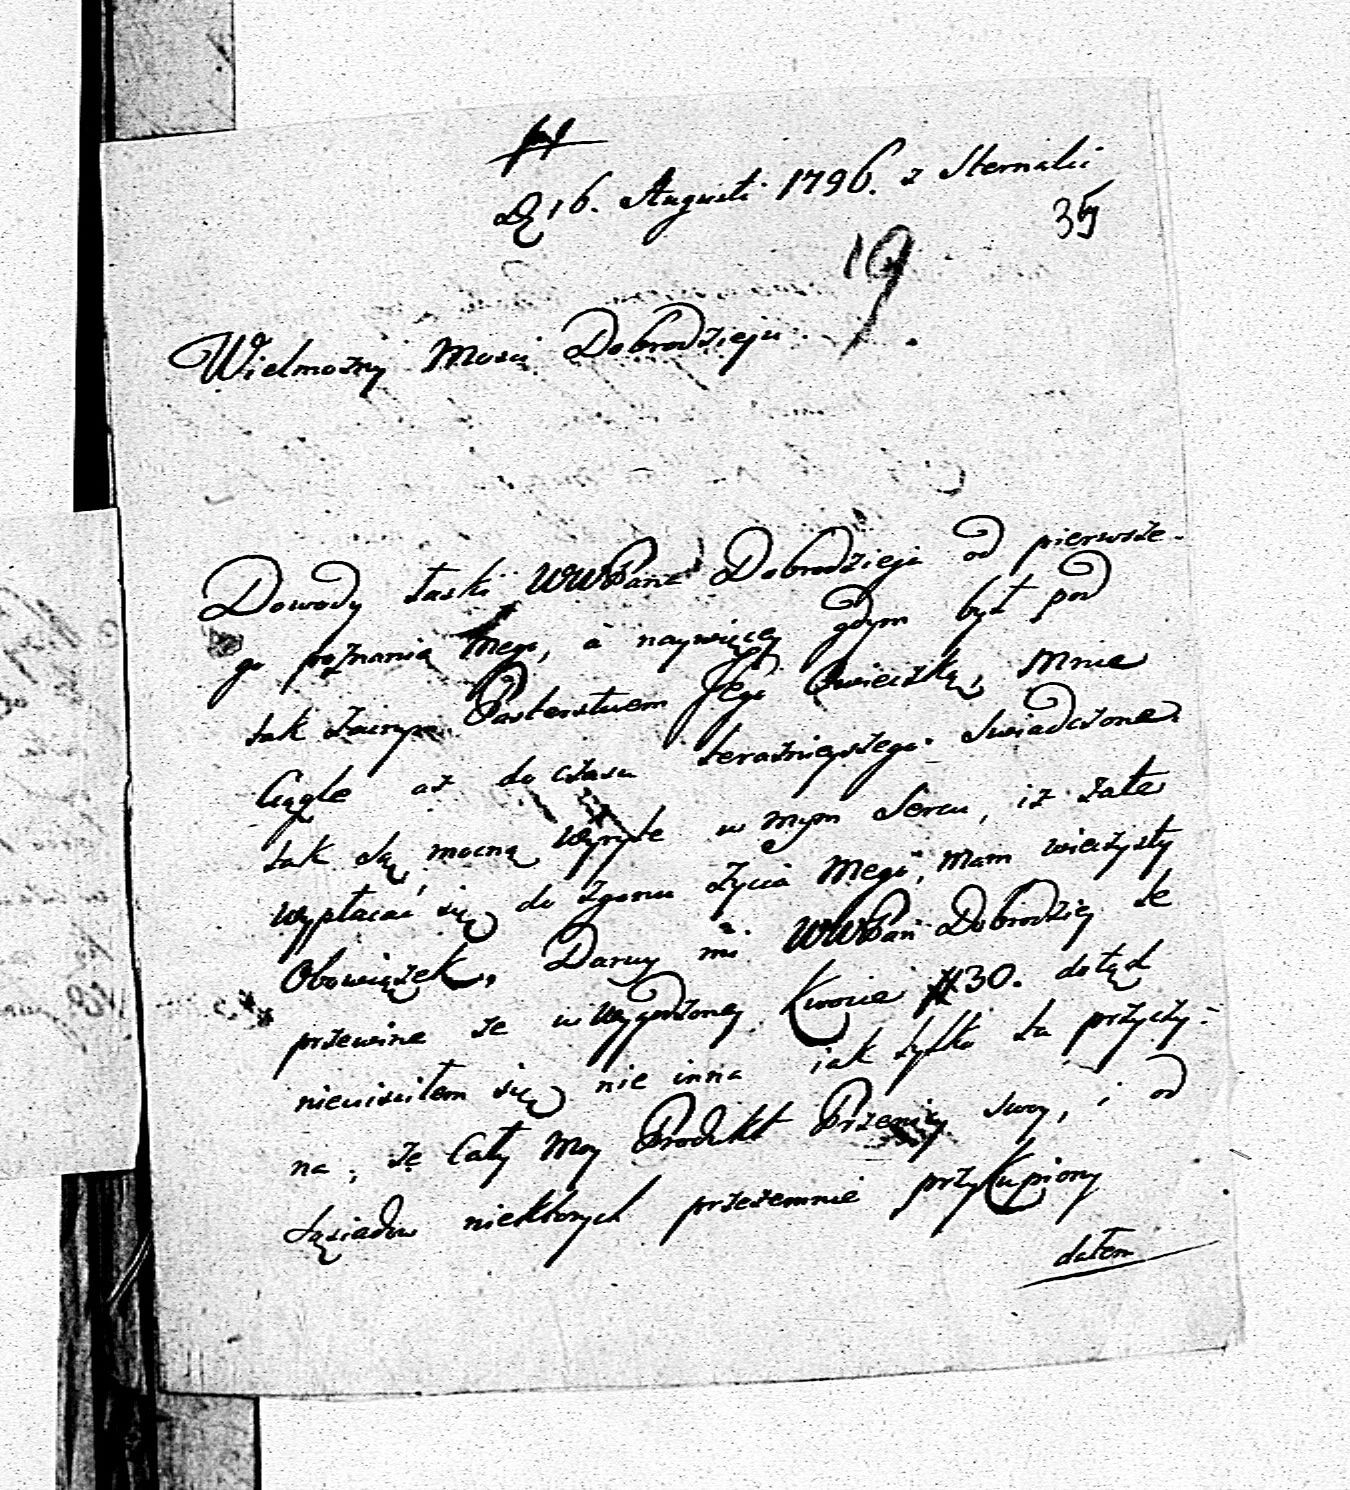 D. 16. Augusti 1796. z Sternalic
35
19
Wielmożny Mosci Dobrodzieju
Dowody łaski WWPana Dobrodzieja od pierwsze-
go poznania mego, á naywięcey gdym był pod
tak Pasterstwem Jego Owieczką, Mnie
Ciągle aż do czasu teraznieyszego swiadczone
tak są mocną wyryte w mym Sercu, iż
wypłacać się do zgonu życia Mego, Mam wieczysty
Obowiązek. Daruy mi WWPan Dobrodziey te
przewine że w wygodzoney kwocie # 30. dotąd
nieuisciłem się nie inna iak tylko ta przyczy-
na, że Cały Moy Produkt Przenicy swoy, i od
Sąsiadow niektorych przezemnie przykupiony
dałem